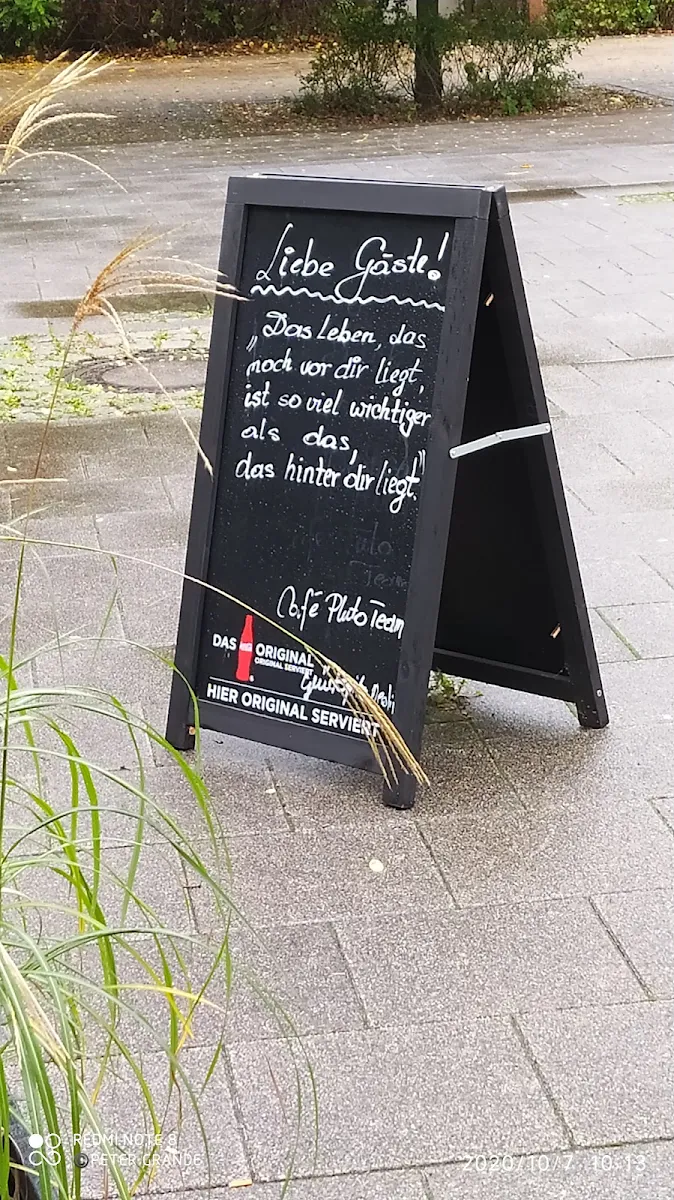 Liebe Gäste!
„Das Leben, das
noch vor dir liegt,
ist so viel wichtiger
als das,
das hinter dir liegt."
Café Pluto Team
DAS ORIGINAL
ORIGINAL SERVIERT
HIER ORIGINAL SERVIERT
REDMI NOTE 8
PETER GRANDE
2020/10/7 10:13